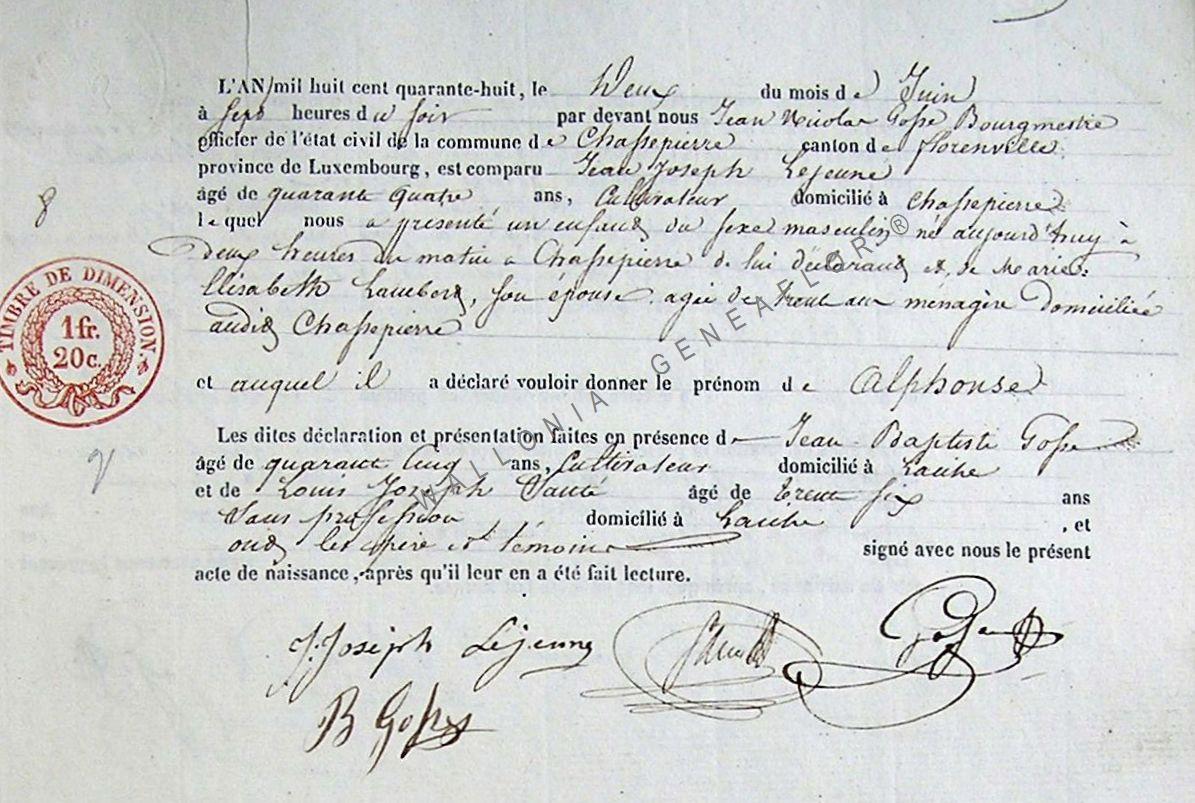 L'AN mil huit cent quarante-huit, le Deux du mois de Juin
à Sept heures du Soir par devant nous Jean Nicolas Gosse Bourgmestre
officier de l'état civil de la commune de Chassepierre canton de florenville
province de Luxembourg, est comparu Jean Joseph Lejeune
âgé de quarante quatre ans, Cultivateur domicilié à Chassepierre
lequel nous a présenté un enfant du sexe masculin né aujourd'huy à
deux heures du matin a Chassepierre de lui déclarant et de Marie
Elisabeth Lambert, son épouse agée de trente ans ménagère domiciliée
audit Chassepierre
et auquel il a déclaré vouloir donner le prénom de Alphonse
Les dites déclaration et présentation faites en présence de Jean Baptiste Gosse
âgé de quarante Cinq ans, Cultivateur domicilié à Laiche
et de Louis Joseph âgé de trente six ans
Sans profession domicilié à Laiche , et
ont les père et témoins signé avec nous le présent
acte de naissance, après qu'il leur en a été fait lecture.
J. Joseph Lejeune
Gosse
B Gosse
8
TIMBRE DE DIMENSION.
1 fr.
20 c.
WALLONIA GENEAFLOR®